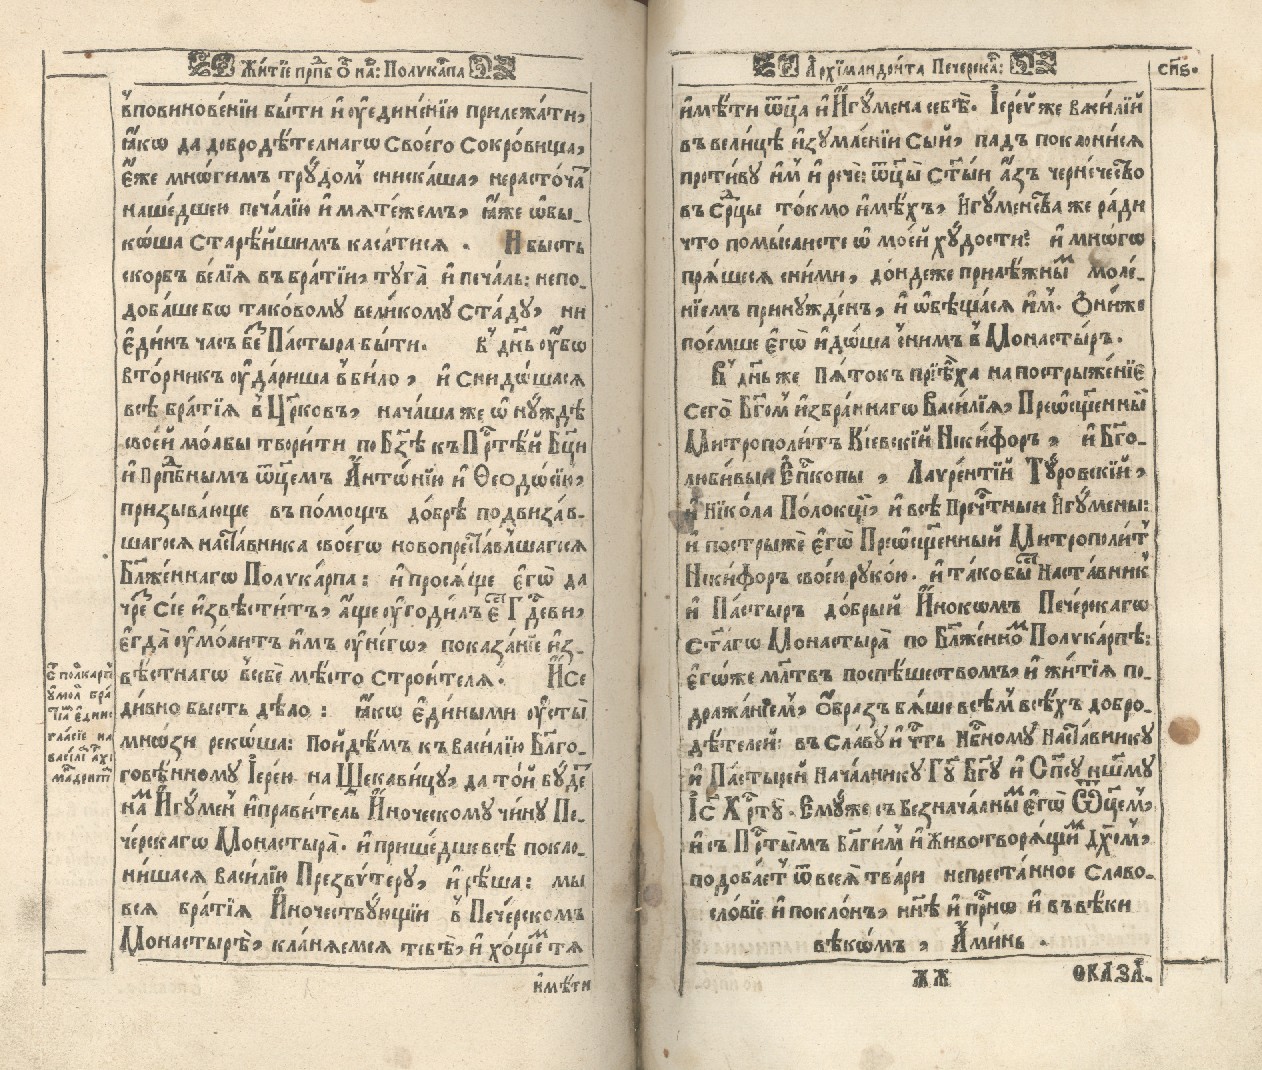 Жи́тїе прпⷣб ѻ҃ на́: Полука́рпа
в̾повиновенїи бы́ти и҆ оу҆единенїю прилежа́ти,
ꙗ҆́кѡ да добродѣ́телнагѡ своегѡ сокро́вища,
є҆́же мнѡ́гимъ трꙋдо́м̾ снискаша, нерасточа́т
наше́дшею печа́лїю и҆ мѧте́жемъ, ꙗ҆́же ѡ҆бы-
ко́ша старѣ́йшимъ каса́тисѧ . И҆ бысть
скорбъ ве́лїѧ въ бра́тїи, туга̀ и҆ печа́ль: непо-
доба́ше бѡ тако́вому вели́кому ста́ду, ни
є҆ди́нъ часъ бе́з̾ Па́стырѧ бы́ти. В̾ дн҃ь оу҆́бѡ
вто́рникъ оу҆да́риша в̾ би́ло, и҆ снидо́шасѧ
всѣ̀ бра́тїѧ в̾ Цр҃ковъ, нача́ша же ѡ҆ нꙋ́ждѣ
свое́й молбы̀ твори́ти по Бз҃ѣ къ Прⷭ҇тѣ́й Бц҃и
и҆ Прпⷣбнымъ ѿц҃емъ А҆нтѡ́нїю и҆ Ѳеодо́сїю,
призыва́юще въ по́мощъ до́брѣ подвиза́в-
шагосѧ наста́вника своегѡ новопреста́влшагосѧ
Бл҃же́ннагѡ Полука́рпа: и҆ прося́ще є҆гѡ̀ да
чре́з̾ сїе и҆звѣсти́тъ, а҆́ще оу҆годи́лъ є҆́ст Гд҃еви,
є҆гда̀ оу҆мо́литъ и҆мъ оу҆ негѡ̀, показа́нїе и҆з-
вѣ́стнагѡ в̾ себѐ мѣ́сто строи́телѧ. И҆ се
ди́вно бысть дѣ́ло: ꙗ҆́кѡ є҆ди́ными оу҆сты̀
мнѡ́зи реко́ша: Пойдѣ́мъ къ Васи́лїю Бл҃го-
говѣ́нному І҆ере́ю на Щекави́цу, да то́й бꙋ́де
на́м̾ И҆гꙋ́мен̾ и҆ прави́тель И҆́ноческому чи́ну Пе-
че́рскагѡ Монастырѧ̀. и҆ прише́дше всѣ̀ покло-
ни́шасѧ Васи́лїю Презвѵ́теру, и҆ рѣ́ша: мы
всѧ бра́тїѧ И҆́ночествꙋ́ющїи в̾ Пече́рскомъ
Монастырѣ̀, кла́нѧемсѧ тебѣ̀, и҆ хо́щем̾ тѧ
и҆мѣ́ти
С полкарпъ
ꙋмол̾ бра
тїа є҆дино
гласїе на
васил̾ ахі
мадрит
А҆рхїмандри́та Пече́рска́:
спв.
и҆мѣ́ти ѿц҃а и҆ И҆гꙋ́мена себѣ̀. І҆ере́й же Васи́лїй
въ вели́цѣ и҆зумле́нїи сый, падъ поклони́сѧ
проти́ву и҆̀м и҆ рече: ѿц҃ы ст҃ы́и а҆́зъ черне́чество
въ ср҃дцы то́кмо и҆мѣ́хъ, И҆гꙋ́менства же ра́ди
что помы́слисте ѡ҆ мое́й хꙋ́дости? и҆ мно́гѡ
прѧ́шесѧ с ни́ми, до́ндеже прилѣ́жным̾ моле́-
нїемъ принужде́нъ, и҆ ѡ҆бѣща́сѧ и҆́м̾. Ѻ҆ни́же
пое́мше є҆гѡ̀ и҆ до́ша с ни́мъ в̾ Монасты́рь.
В̾ дн҃ь же пѧто́къ прїѣ́ха на постриже́нїе
сегѡ̀ Бг҃ом̾ и҆збра́ннагѡ Васи́лїѧ, Преѡсщ҃е́нный
Митрополи́тъ Кі́евскїй Ники́форъ, и҆ Бг҃о-
люби́выи Е҆пⷭ҇копы, Лавре́нтїй Тꙋ́ровскїй,
и҆ Нїко́ла По́лоцкїй, и҆ всѣ̀ Пречⷭ҇тныи И҆гꙋ́мены:
и҆ пострижѐ є҆гѡ̀ Преѡсщ҃е́нный Митрополи́т
Ники́форъ свое́ю руко́ю. и҆ та́ко бы́ст наста́вник
и҆ Па́стырь до́брый И҆́нокѡмъ Пече́рскагѡ
Ст҃а́гѡ Монастырѧ̀ по Бл҃же́нном̾ Полука́рпѣ:
є҆гѡ́же мл҃твъ поспѣ́шествомъ, и҆ жи́тїѧ по-
дража́нїем̾, ѻ҆́бразъ бѧ́ше всѣ́м̾ всѣ́хъ добро-
дѣ́телей: въ сла́ву и҆ чⷭ҇ть Нб҃ному Наста́внику
и҆ Па́стырей Нача́лнику Гдⷭ҇у Бг҃у и҆ Сп҃су нш҃му
Іс҃ Хрⷭ҇ту̀. Ему́же съ Безнача́лным̾ є҆гѡ̀ Ѿц҃ем̾,
и҆ съ Прⷭ҇ты́мъ Бл҃ги́м̾ и҆ Животворѧ́щим̾ Дх҃ом̾,
подоба́ет̾ ѿ всеѧ̀ тва́ри непреста́нное Славо-
сло́вїе и҆ покло́нъ, нн҃ѣ и҆ при́снѡ и҆ въ вѣ́ки
вѣ́кѡмъ, А҆ми́нь .
ѪѪ
СКАЗА-